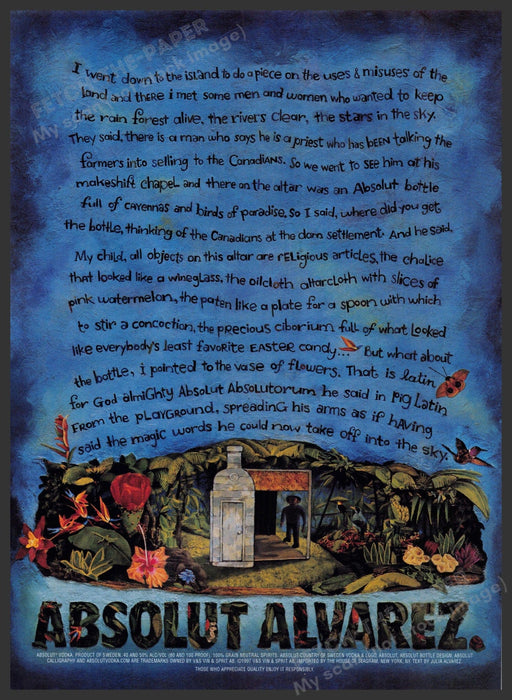 I went down to the island to do a piece on the uses & misuses of the
land and there i met some men and women who wanted to keep
the rain forest alive, the rivers clear, the stars in the sky.
They said, there is a man who says he is a priest who has BEEN talking the
farmers into selling to the Canadians. So we went to SEE him at his
makeshift chapel and there on the altar was an Absolut bottle
full of cayennas and birds of paradise, So I said, where did you get
the bottle, thinking of the Canadians at the dam settlement. And he said,
My child, all objects on this altar are rELigious articles, the chalice
that looked like a wineglass, the oilcloth altarcloth with slices of
pink watermelon, the paten like a plate for a spoon with which
to stir a concoction, the precious ciborium full of what Looked
like everybody's least favorite EASTER candy... But what about
the bottle, i pointed to the vase of flowers. That is latin
for God almiGHty AbsoLut AbsoLutorum he said in PiG LatiN
From the pLayGround, spreading his arms as if hAving
said the magic words he could now take off into the sky.
ABSOLUT ALVAREZ.
ABSOLUT® VODKA. PRODUCT OF SWEDEN. 40 AND 50% ALC/VOL (80 AND 100 PROOF). 100% GRAIN NEUTRAL SPIRITS. ABSOLUT COUNTRY OF SWEDEN VODKA & LOGO, ABSOLUT, ABSOLUT BOTTLE DESIGN, ABSOLUT
CALLIGRAPHY AND ABSOLUTVODKA.COM ARE TRADEMARKS OWNED BY V&S VIN & SPRIT AB. ©1997 V&S VIN & SPRIT AB. IMPORTED BY THE HOUSE OF SEAGRAM, NEW YORK, NY. TEXT BY JULIA ALVAREZ.
THOSE WHO APPRECIATE QUALITY ENJOY IT RESPONSIBLY.